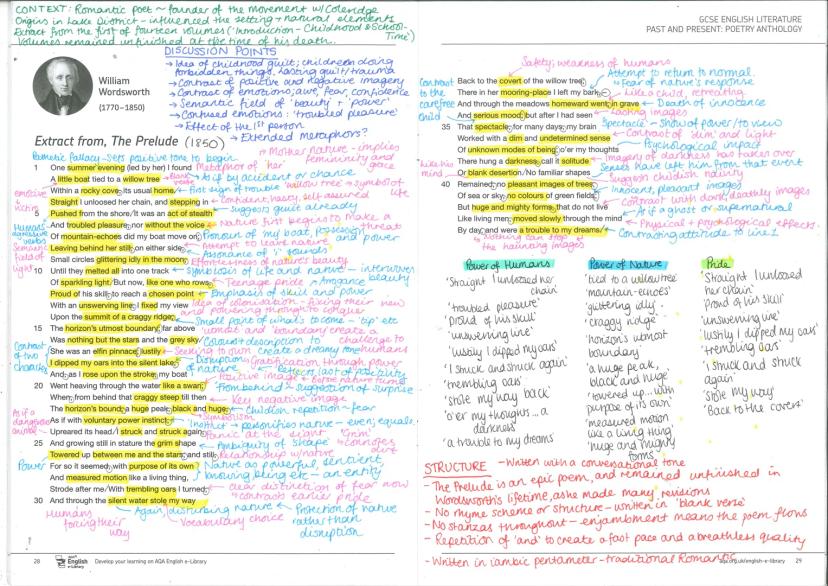 CONTEXT: Romantic poet ~ founder of the movement w/ Coleridge
Origins in Lake District - influenced the setting + natural elements
Extract from the first of fourteen volumes ('Introduction - Childhood & School-Time')
Volumes remained unfinished at the time of his death.
William
Wordsworth
(1770–1850)
DISCUSSION POINTS
→ Idea of childhood guilt; children doing
forbidden things, lasting guilt/trauma
→ Contrast of positive and negative imagery
→ Contrast of emotions, awe, fear, confidence
→ Semantic field of 'beauty' + 'power'
→ Confused emotions: 'troubled pleasure'
→ Effect of the 1st person
→ Extended metaphors?
Extract from, The Prelude (1850)
Pathetic Fallacy - Sets positive tone to begin
Mother nature - implies
femininity and
grace
1 One summer evening (led by her) I found
A little boat tied to a willow tree
Within a rocky cove, its usual home.
Straight I unloosed her chain, and stepping in
5 Pushed from the shore. It was an act of stealth
And troubled pleasure, nor without the voice
Of mountain-echoes did my boat move on;
Leaving behind her still, on either side,
Small circles glittering idly in the moon,
10 Until they melted all into one track
Of sparkling light. But now, like one who rows,
Proud of his skill, to reach a chosen point
With an unswerving line, I fixed my view
Upon the summit of a craggy ridge,
15 The horizon's utmost boundary; far above
Was nothing but the stars and the grey sky.
She was an elfin pinnace; lustily
I dipped my oars into the silent lake,
And, as I rose upon the stroke, my boat
20 Went heaving through the water like a swan;
When, from behind that craggy steep till then
The horizon's bound, a huge peak, black and huge,
As if with voluntary power instinct,
Upreared its head. I struck and struck again,
25 And growing still in stature the grim shape
Towered up between me and the stars, and still,
For so it seemed, with purpose of its own
And measured motion like a living thing,
Strode after me. With trembling oars I turned,
30 And through the silent water stole my way
As if by accident or chance
First sign of trouble
Confident, hasty, self assured
Suggests guilt already
Nature first begins to make a
Attempt to leave nature
Assonance of 'i' sounds
Effortlessness of nature's beauty
Symbolism of life and nature - interweaves
beauty
Teenage pride - Arrogance
Emphasis of skill and power
Small point of what's to come - 'tip' etc
'utmost' and 'boundary' create a
challenge to
humans
Create a dreamy tone
Disruption
of nature
From behind - suggestion of surprise
Key negative image
Childish repetition - fear
Symbolism
'Instinct' - personifies nature - even; equals
Panic at the giant
Ambiguity of 'shape'
Relationship w/ nature
Nature as powerful, sentient
knowing being etc - an entity
clear distinction of fear now
- contrast earlier pride
Again, disturbing nature
Protection of nature
rather than
disruption
Vocabulary choice
Humans
forcing their
way
Power
Contrast
of two
28 English e-Library Develop your learning on AQA English e-Library
GCSE ENGLISH LITERATURE
PAST AND PRESENT: POETRY ANTHOLOGY
Safety; weakness of humans
Back to the covert of the willow tree;
There in her mooring-place I left my bark,
And through the meadows homeward went, in grave
And serious mood; but after I had seen
35 That spectacle, for many days, my brain
Worked with a dim and undetermined sense
Of unknown modes of being; o'er my thoughts
There hung a darkness, call it solitude
Or blank desertion. No familiar shapes
40 Remained, no pleasant images of trees,
Of sea or sky, no colours of green fields;
But huge and mighty forms, that do not live
Like living men, moved slowly through the mind
By day, and were a trouble to my dreams.
Contrast
to the
carefree
child
Attempt to return to normal
- Fear of nature's response
Like a child, retreating
Death of innocence
Lasting images
'Spectacle' - Show of power/to view
Contrast of 'dim' and light
Psychological impact
Imagery of darkness has taken over
Senses have left him from that event
Suggest childish naivety
Innocent, pleasant images
Contrast with dark, deathly images
As if a ghost or supernatural
Physical + psychological effects
Contrasting attitude to line 1
Nothing can stop
the haunting images
Like his
mind
Power of Humans
'Straight I unloosed her
chain'
'troubled pleasure'
'proud of his skill'
'unswerving line'
'lustily I dipped my oars'
'I struck and struck again'
'trembling oars'
'stole my way back'
'o'er my thoughts... a
darkness'
'a trouble to my dreams'
Power of Nature
'tied to a willow tree'
'mountain-echoes'
'glittering idly'
'craggy ridge'
'horizon's utmost
boundary'
'a huge peak,
black and huge'
'towered up... with
purpose of its own'
'measured motion
like a living thing'
'huge and mighty
forms'
Pride
'Straight I unloosed
her chain'
'Proud of his skill'
'unswerving line'
'lustily I dipped my oars'
'trembling oars'
'I struck and struck
again'
'stole my way'
'Back to the covert'
STRUCTURE - Written with a conversational tone
- The Prelude is an epic poem, and remained unfinished in
Wordsworth's lifetime, as he made many revisions
- No rhyme scheme or structure - written in 'blank verse'
- No stanzas throughout - enjambment means the poem flows
- Repetition of 'and' to create a fast pace and a breathless quality
- Written in iambic pentameter - traditional Romantic
aqa.org.uk/english-e-library 29